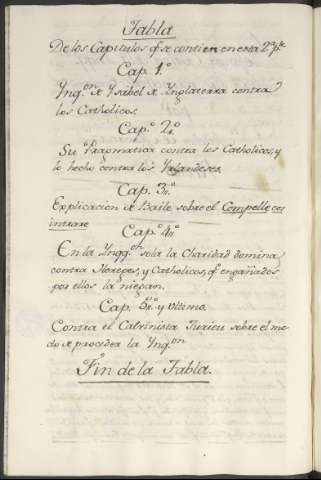 Tabla
De los Capitulos qe. se contien en esta 2ª pte.
Cap. 1.º
Ynq.on de Ysabel de Ynglaterra contra
los Catholicos.
Cap.º 2.º
Su Pragmatica contra los Catholicos, y
lo hecho contra los Yrlandeses.
Cap. 3.º
Explicacion de Baile sobre el Compelle eos
intrare
Cap.º 4.º
En la Ynqq.on sola la Charidad domina
contra Hereges, y Catholicos, qe. engañados
por ellos la niegan.
Cap. 5.º y ultimo.
Contra el Calvinista Jurieu sobre el mo
do de proceder la Ynq.on
Fin de la Tabla.